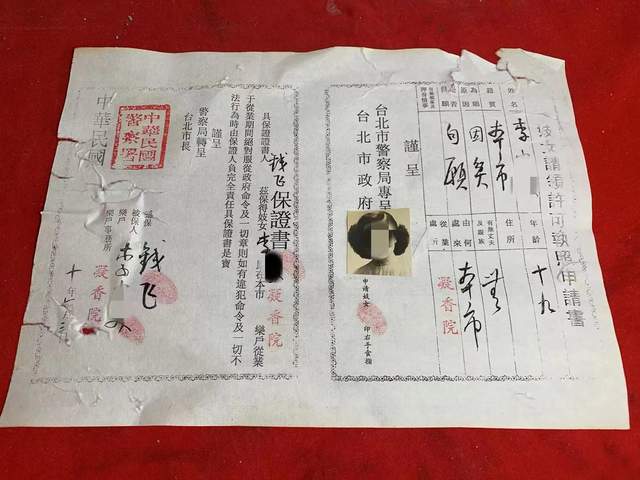 妓女請領許可執照申請書
姓名 李小
年齡 十九
籍貫 本市
住所
為娼原因 因貧
有無丈夫及親族 無
是否自願 自願
由何處來 本市
從業處 凝香院
謹呈
台北市警察局專呈
台北市政府
申请妓女
印右手食指
保證書
具保證書人 錢飞 茲保得妓女李 民在本市 凝香院 樂戶從業
于從業期間絕對服從政府命令及一切章則如有違犯命令及一切不
法行為時由保證人員完全責任具保證書是實
謹呈
警察局轉呈
台北市長
中華民國警察署
具保 錢飞
被保人 李
樂戶
樂戶事務所 凝香院
中華民國 十年